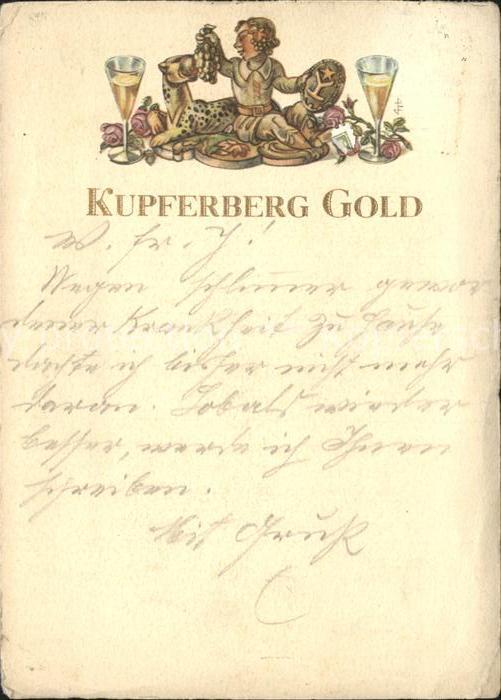 KUPFERBERG GOLD
W. Fr. J!
Wegen schlimmer gewor
dener Krankheit zu Hause
dachte ich bisher nicht mehr
daran. Sobald wieder
besser, werde ich Ihnen
schreiben.
Mit Gruß